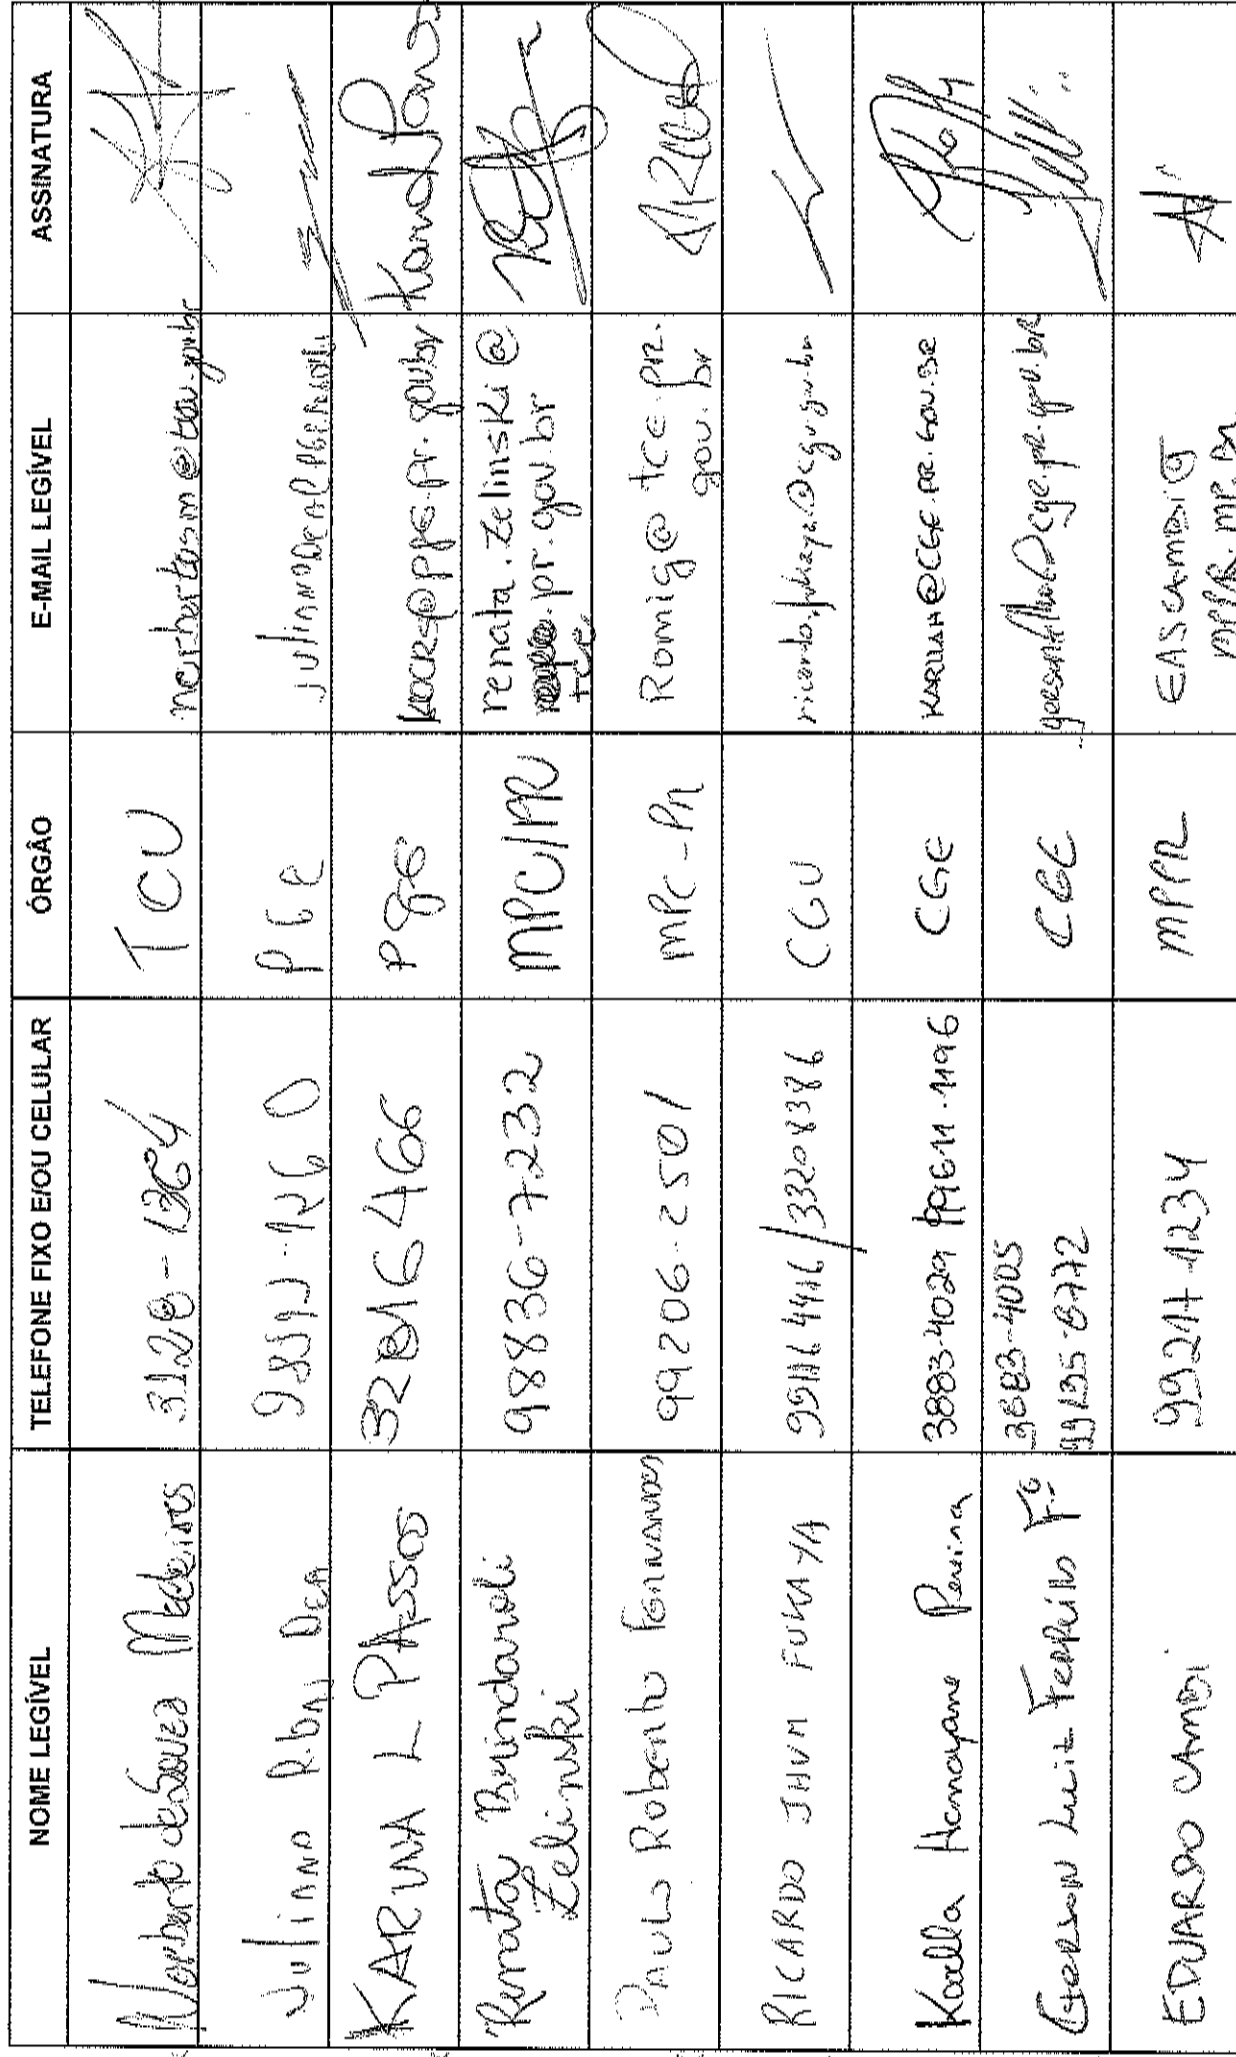 NOME LEGÍVEL TELEFONE FIXO E/OU CELULAR ÓRGÃO E-MAIL LEGÍVEL ASSINATURA
Norberto de Souza Medeiros 3128-1364 TCU norbertosm@tcu.gov.br
Juliano Ribas Dea PGE
KARINA L PASSOS 32816466 PGE pge.pr.gov.br
Renata Brindaroli MPC/PR renata.zelinski@
Zelinski 98836-7232 pr.gov.br
tce.
PAULO Roberto FERNANDES 99206-2501 MPC-PR Romig@tce.pr.
gov.br
RICARDO JHUM FUKAYA 991164416/33208386 CGU ricardo.fukaya@cgu.gov.br
Karlla Hamayane Pereira 3883-4029 99611-1196 CGE KARLLAH@CGE.PR.GOV.BR
3883-4005
Gerson Luiz Ferreira Fº 99135-8772 CGE gersonfilho@cge.pr.gov.br
EDUARDO CAMBI 99217-1234 MPPR EASCAMBI@
MPPR.MP.BR